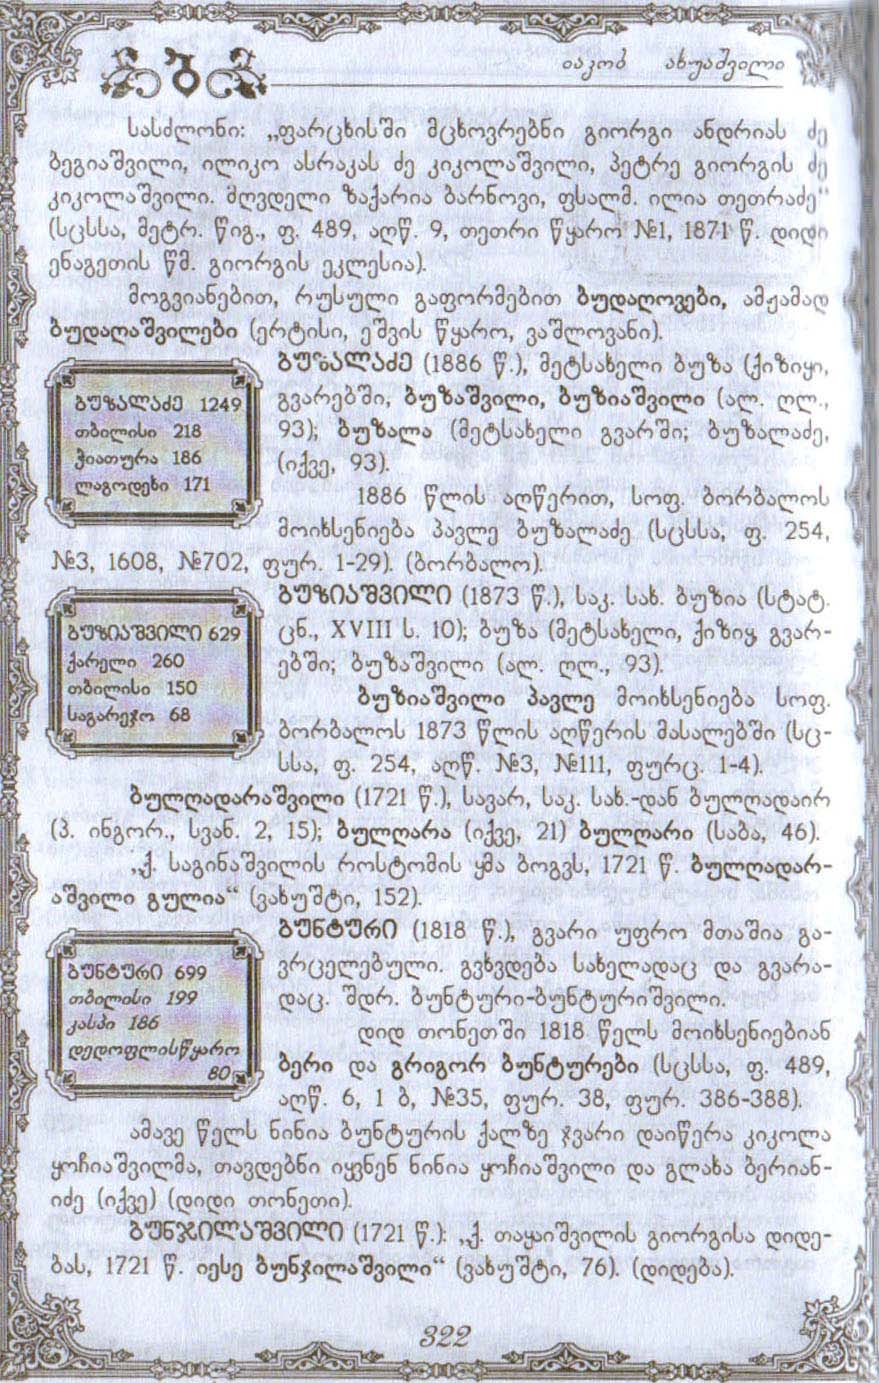 ბ
იაკობ ახუაშვილი
სასძლონი: „ფარცხისში მცხოვრებნი გიორგი ანდრიას ძე
ბეგიაშვილი, ილიკო ასრაკას ძე კიკოლაშვილი, პეტრე გიორგის ძე
კიკოლაშვილი. მღვდელი ზაქარია ბარნოვი, ფსალმ. ილია თეთრაძე“
(სცსსა, მეტრ. წიგ., ფ. 489, აღწ. 9, თეთრი წყარო №1, 1871 წ. დიდი
ენაგეთის წმ. გიორგის ეკლესია).
მოგვიანებით, რუსული გაფორმებით ბუდაღოვები, ამჟამად
ბუდაღაშვილები (ერტისი, ეშვის წყარო, ვაშლოვანი).
ბუზალაძე 1249
თბილისი 218
ჭიათურა 186
ლაგოდეხი 171
ბუზალაძე (1886 წ.), მეტსახელი ბუზა (ქიზიყი,
გვარებში, ბუზაშვილი, ბუზიაშვილი (ალ. ღლ.,
93); ბუზალა (მეტსახელი გვარში; ბუზალაძე,
(იქვე, 93).
1886 წლის აღწერით, სოფ. ბორბალოს
მოიხსენიება პავლე ბუზალაძე (სცსსა, ფ. 254,
№3, 1608, №702, ფურ. 1-29). (ბორბალო).
ბუზიაშვილი 629
ქარელი 260
თბილისი 150
საგარეჯო 68
ბუზიაშვილი (1873 წ.), საკ. სახ. ბუზია (სტატ.
ცნ., XVIII ს. 10); ბუზა (მეტსახელი, ქიზიყ. გვარ-
ებში; ბუზაშვილი (ალ. ღლ., 93).
ბუზიაშვილი პავლე მოიხსენიება სოფ.
ბორბალოს 1873 წლის აღწერის მასალებში (სც-
სსა, ფ. 254, აღწ. №3, №111, ფურც. 1-4).
ბულღადარაშვილი (1721 წ.), სავარ, საკ. სახ.-დან ბულღადაირ
(პ. ინგორ., სვან. 2, 15); ბულღარა (იქვე, 21) ბულღარი (საბა, 46).
„ქ. საგინაშვილის როსტომის ყმა ბოგვს, 1721 წ. ბულღადარ-
აშვილი გულია“ (ვახუშტი, 152).
ბუნტური 699
თბილისი 199
კასპი 186
დედოფლისწყარო
80
ბუნტური (1818 წ.), გვარი უფრო მთაშია გა-
ვრცელებული. გვხვდება სახელადაც და გვარა-
დაც. შდრ. ბუნტური-ბუნტურიშვილი.
დიდ თონეთში 1818 წელს მოიხსენიებიან
ბერი და გრიგორ ბუნტურები (სცსსა, ფ. 489,
აღწ. 6, 1 ბ, №35, ფურ. 38, ფურ. 386-388).
ამავე წელს ნინია ბუნტურის ქალზე ჯვარი დაიწერა კიკოლა
ყოჩიაშვილმა, თავდებნი იყვნენ ნინია ყოჩიაშვილი და გლახა ბერიან-
იძე (იქვე) (დიდი თონეთი).
ბუნჯილაშვილი (1721 წ.): „ქ. თაყაიშვილის გიორგისა დიდე-
ბას, 1721 წ. იესე ბუნჯილაშვილი“ (ვახუშტი, 76). (დიდება).
322